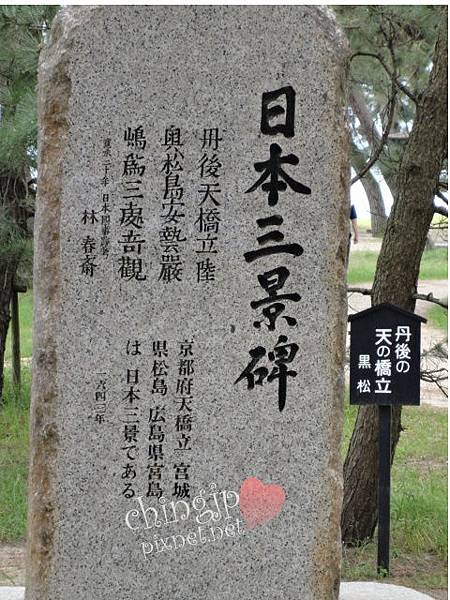 日本三景碑
丹後天橋立陸
奥松島安藝嚴
嶋爲三處奇觀
寛永二十年 日本国事跡考
林 春斎
京都府天橋立 宮城
県松島 広島県宮島
は 日本三景である
一六四三年
丹後の
天の橋立
黒松
chingjp
pixnet.net